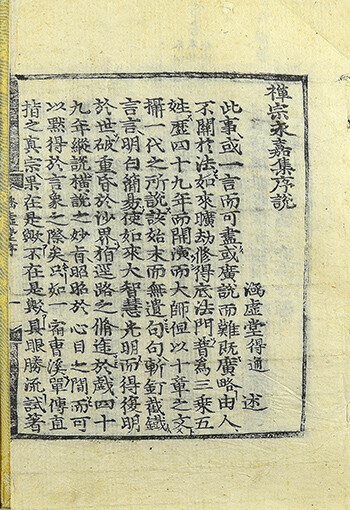 禪宗永嘉集序說
涵虛堂得通 述
此事或一言而可盡或廣說而難旣廣略由人
不關於法如來曠劫修得底法門普爲三乘五
姓歷四十九年而開演而大師但以十章之文
攝一代之所說該始末而無遺句句斬釘截鐵
言言明白簡易使如來大智慧光明而得復明
於世破重昏於沙界指逕路之脩途於戱四十
九年縱說橫說之妙旨昭昭於心目之間而可
以默得於言象之際矣只如一宿曹溪單傳直
指之眞宗果在是歟不在是歟具眼勝流試著